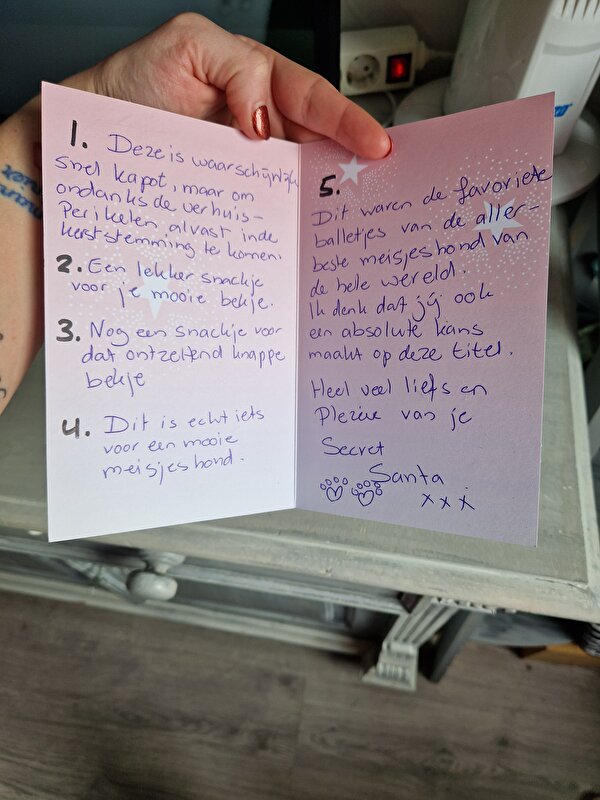 1. Deze is waarschijnlijk
snel kapot, maar om
ondanks de verhuis-
perikelen alvast in de
kerststemming te komen.
2. Een lekker snackje
voor je mooie bekje.
3. Nog een snackje voor
dat ontzettend knappe
bekje
4. Dit is echt iets
voor een mooie
meisjeshond.
5.
Dit waren de favoriete
balletjes van de aller-
beste meisjeshond van
de hele wereld.
Ik denk dat jij ook
een absolute kans
maakt op deze titel.
Heel veel liefs en
Plezier van je
Secret
Santa
x x x